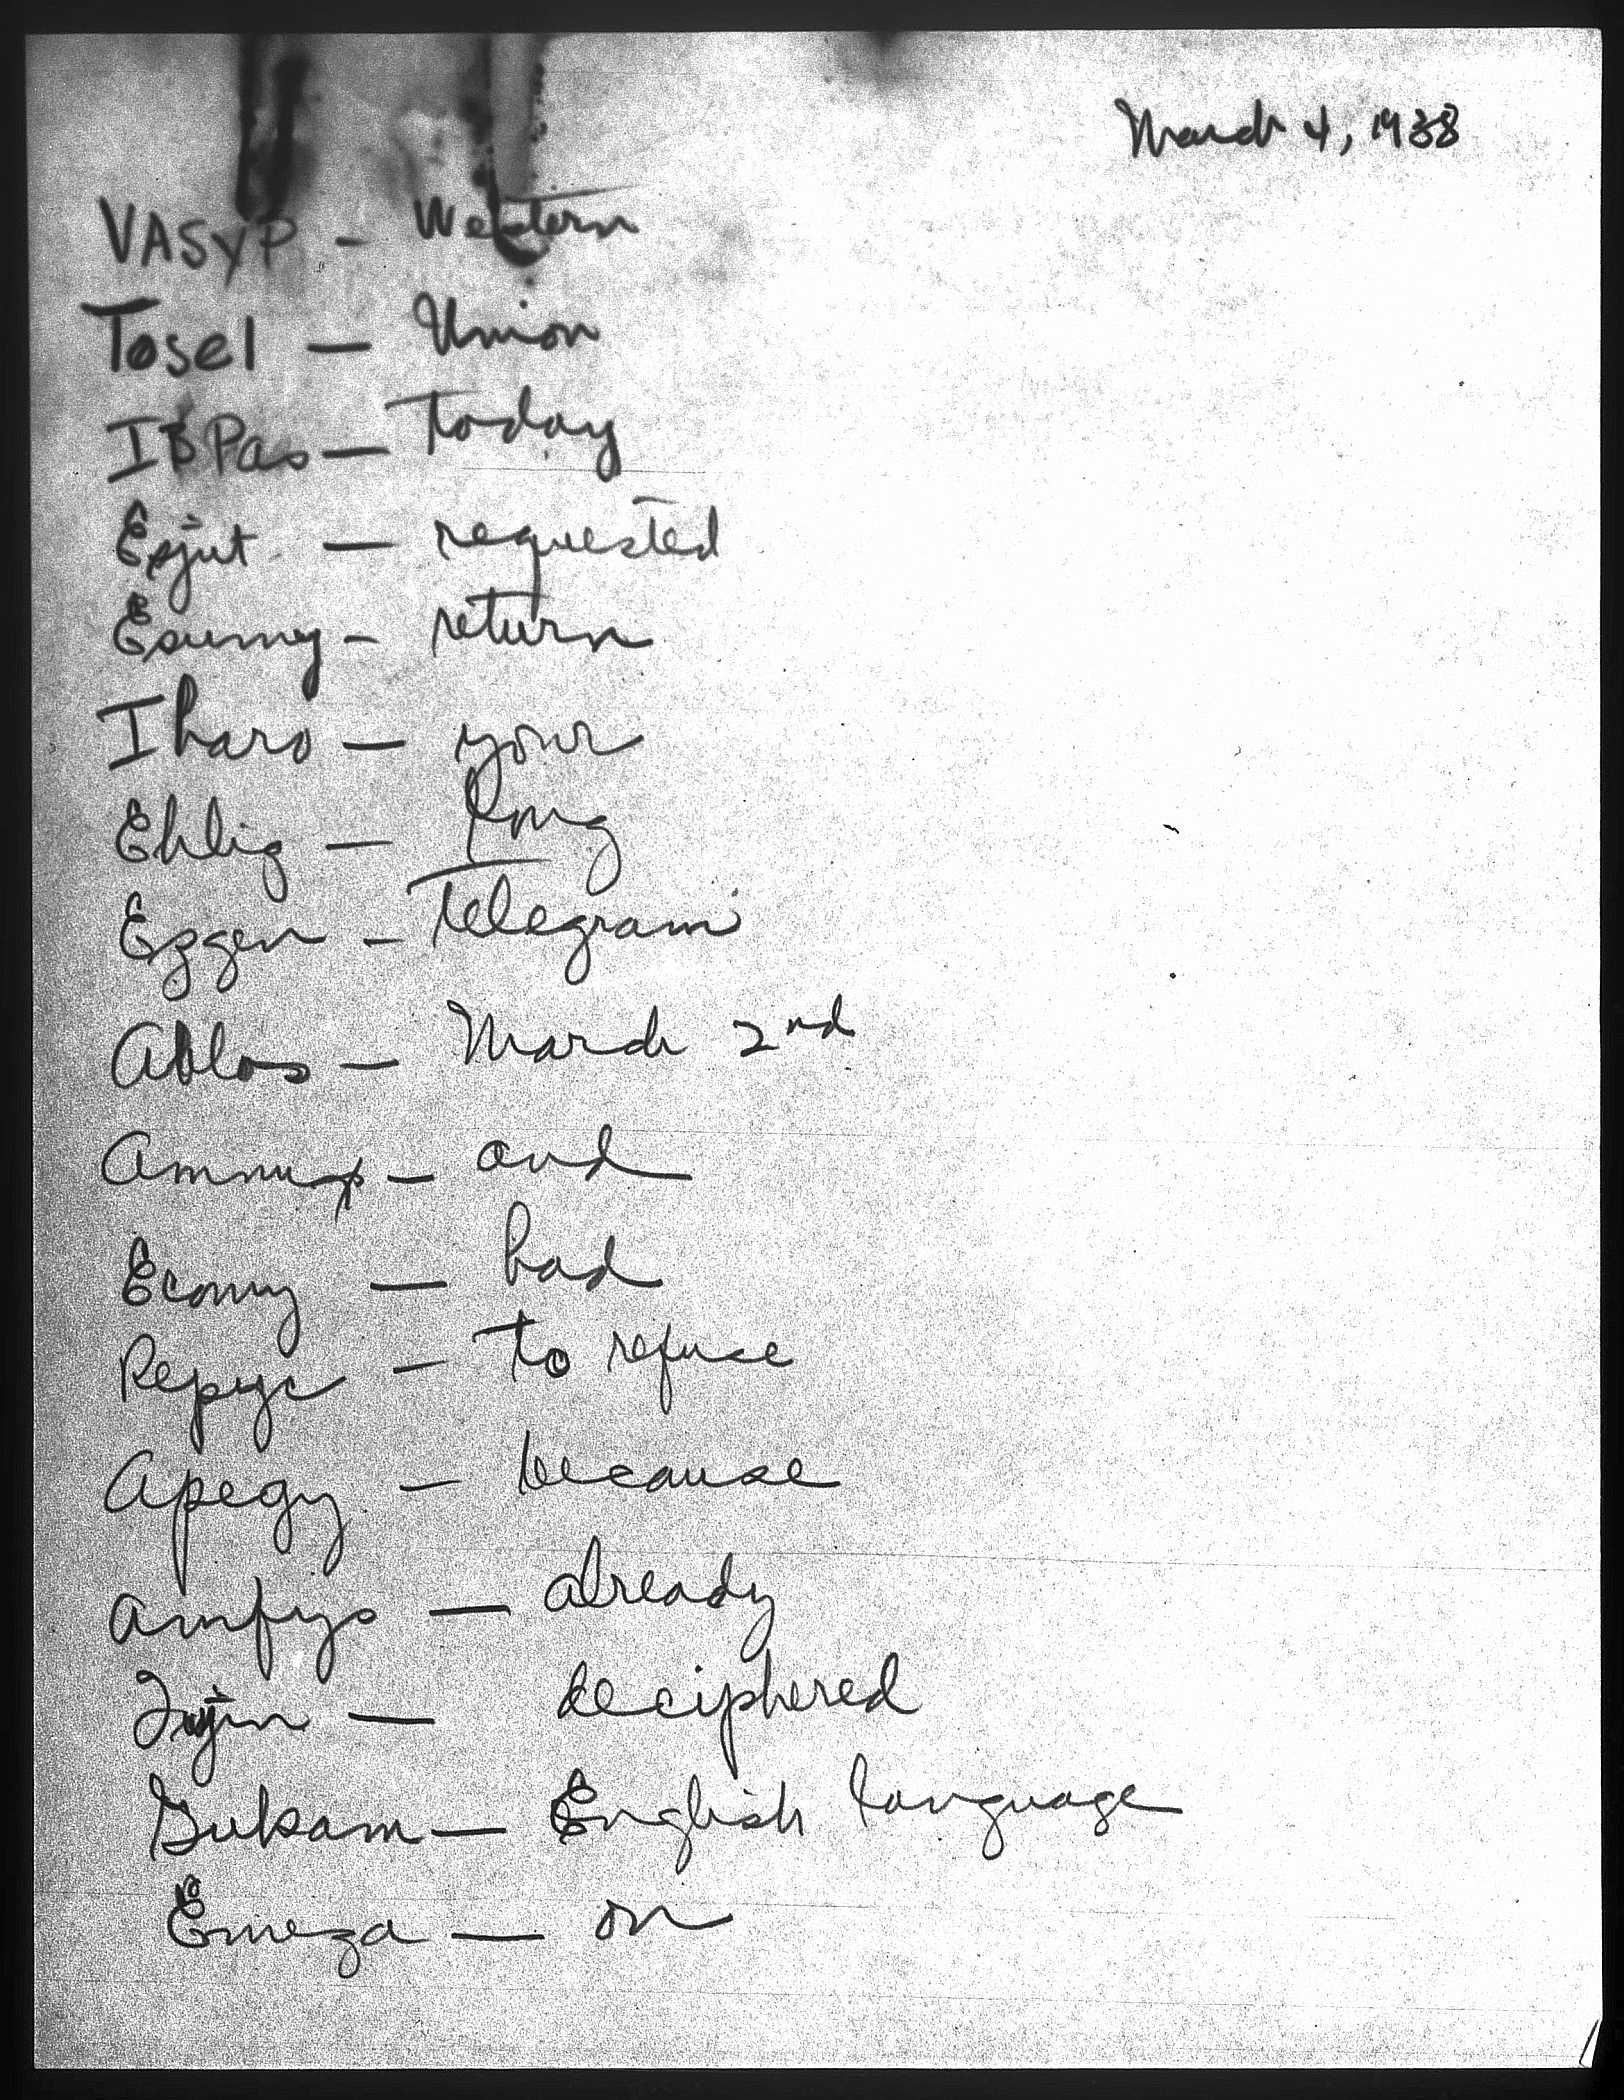 March 4, 1938
VASYP - Western
Tosel - Union
IBPas - Today
Epjut - requested
Esumy - return
Iharo - your
Ehlig - long
Ezgen - Telegram
Ablos - March 2nd
Ammup - and
Ecomy - had
Repyc - to refuse
Apegy - because
Amfyo - already
- deciphered
Gukam - English language
Emeza - on